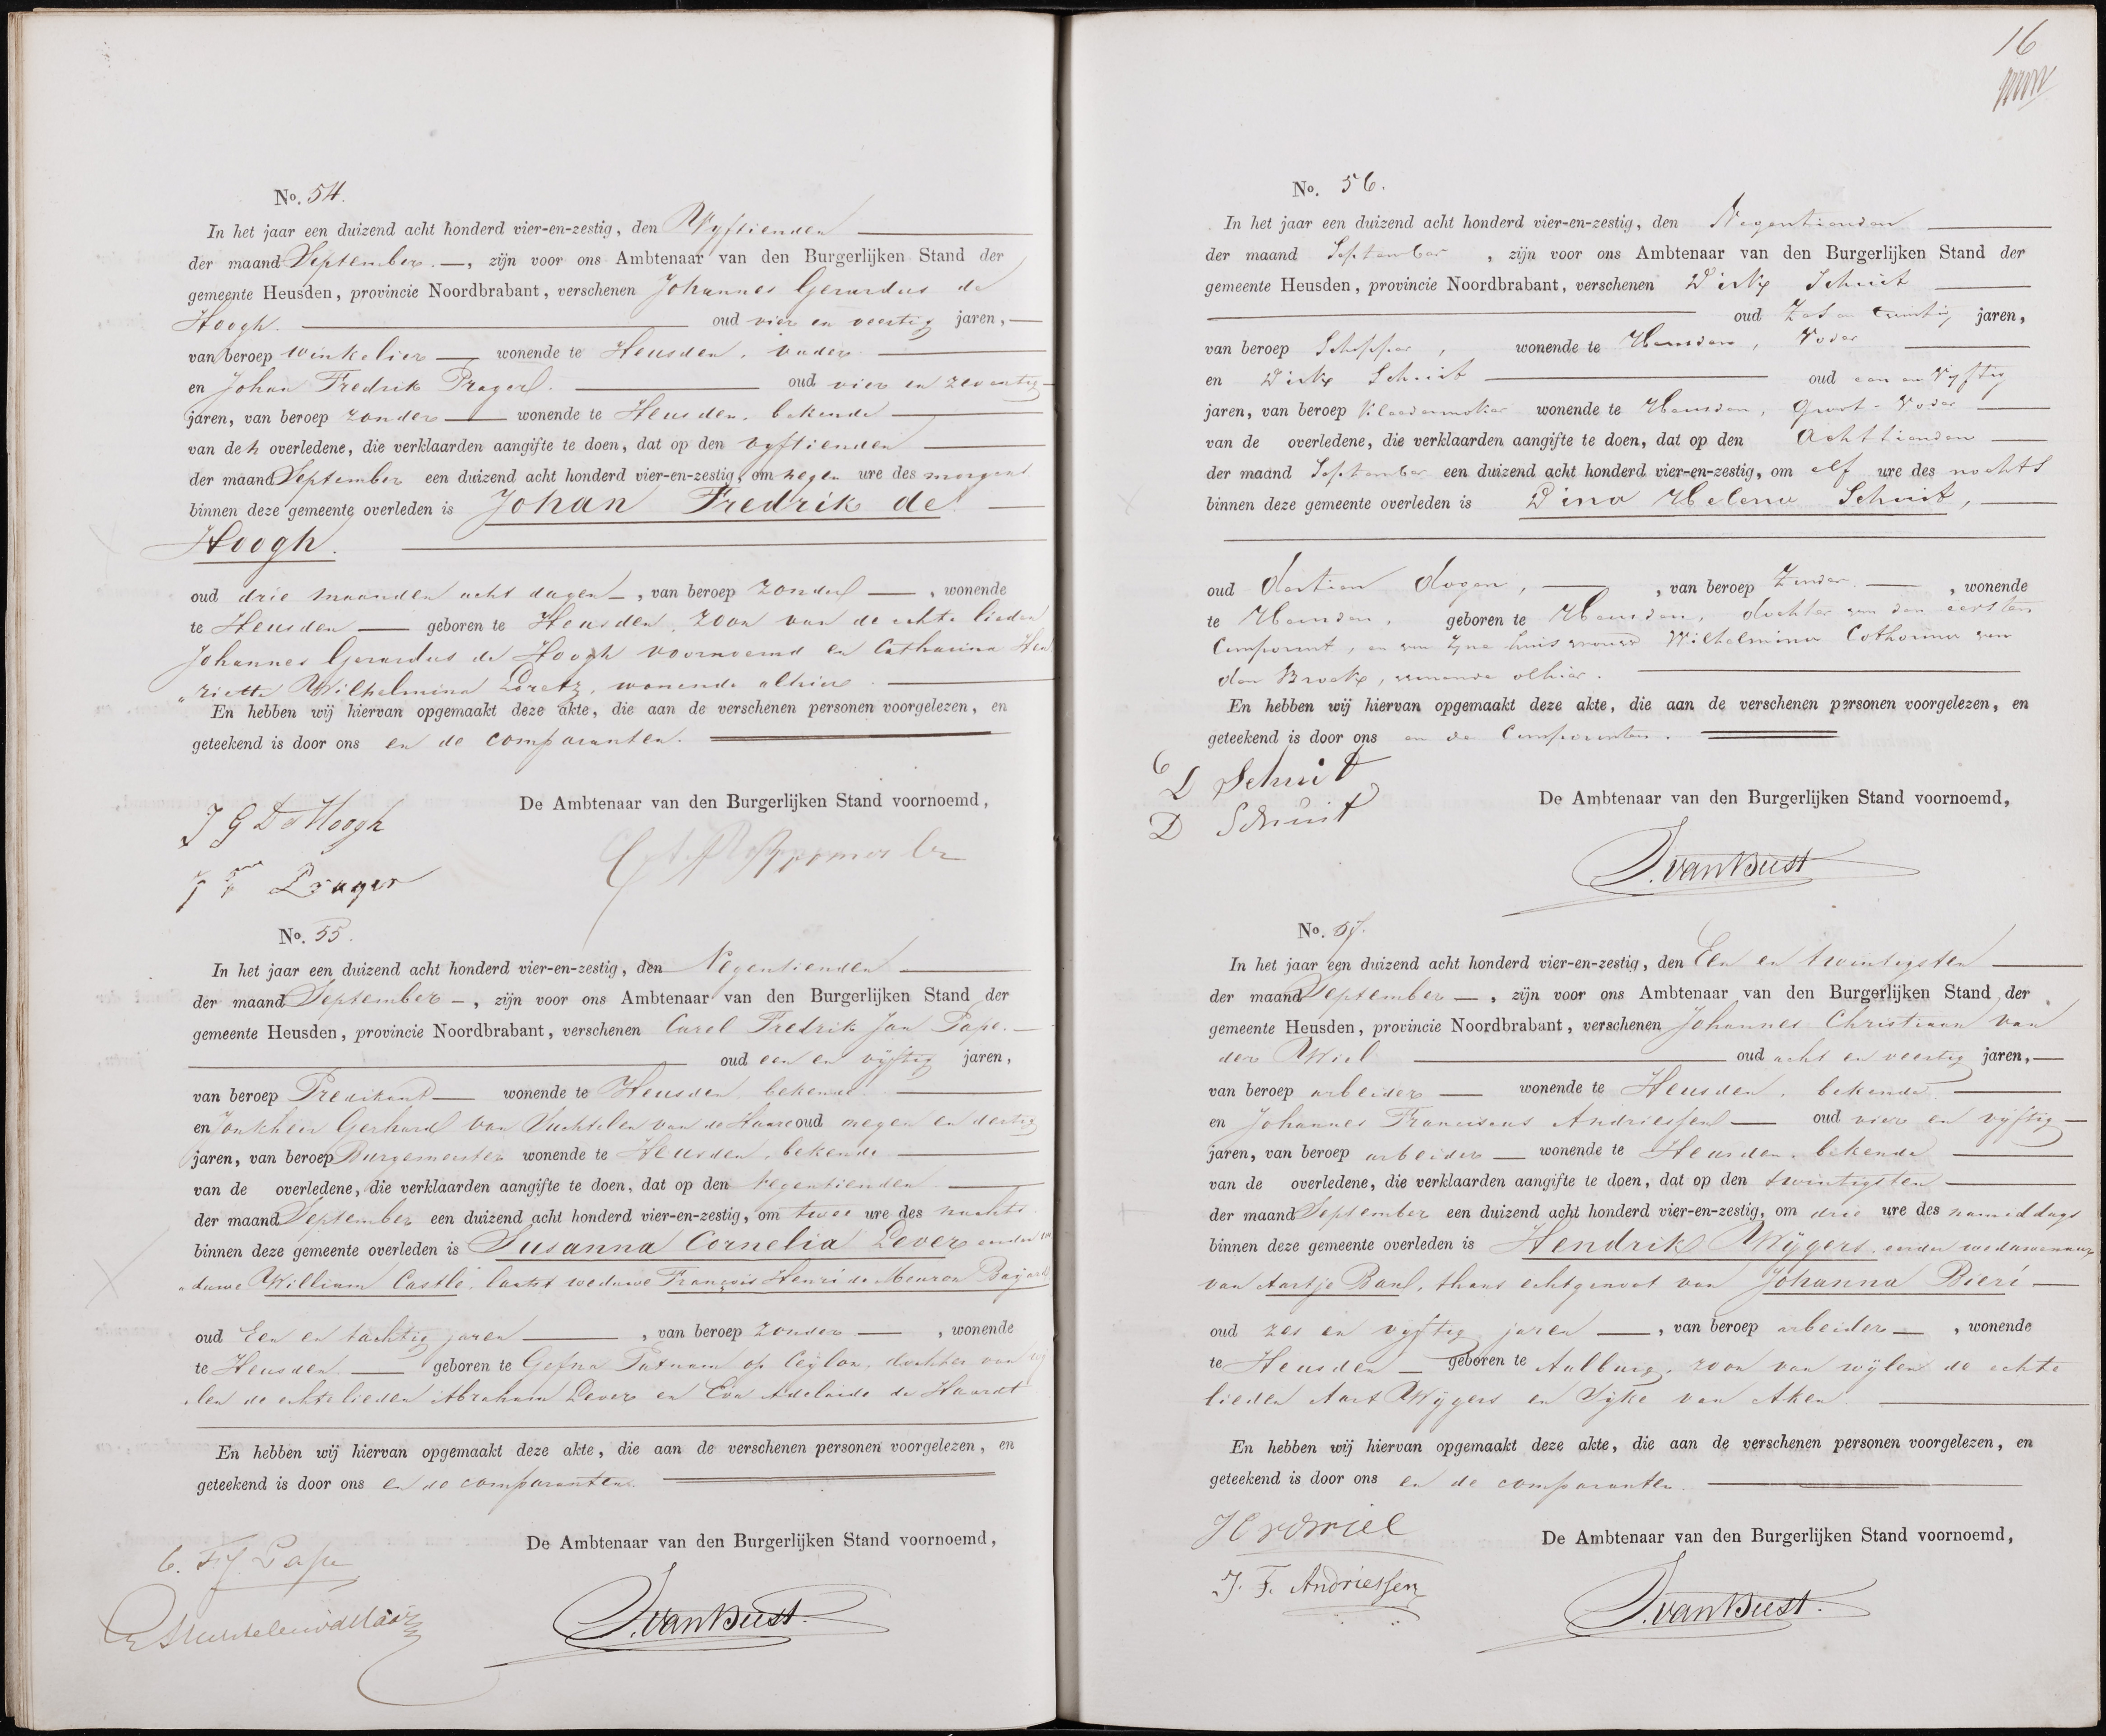 No. 54.
In het jaar een duizend acht honderd vier-en-zestig, den Vyftienden
der maand September, zijn voor ons Ambtenaar van den Burgerlijken Stand der
gemeente Heusden, provincie Noordbrabant, verschenen Johannes Gerardus de
Hoogh. oud vier en veertig jaren,
van beroep winkelier wonende te Heusden, vader
en Johan Fredrik Prager. oud vier en zeventig
jaren, van beroep zonder wonende te Heusden, bekende
van den overledene, die verklaarden aangifte te doen, dat op den vyftienden
der maand September een duizend acht honderd vier-en-zestig, om negen ure des morgens
binnen deze gemeente overleden is Johan Fredrik de
Hoogh.
oud drie maanden acht dagen, van beroep zonder, wonende
te Heusden geboren te Heusden, zoon van de echte lieden
Johannes Gerardus de Hoogh voornoemd en Catharina Hen
"riette Wilhelmina Loretz, wonende alhier
En hebben wij hiervan opgemaakt deze akte, die aan de verschenen personen voorgelezen, en
geteekend is door ons en de comparanten.
De Ambtenaar van den Burgerlijken Stand voornoemd,
J G De Hoogh
J F Prager
No. 55.
In het jaar een duizend acht honderd vier-en-zestig, den Negentienden
der maand September, zijn voor ons Ambtenaar van den Burgerlijken Stand der
gemeente Heusden, provincie Noordbrabant, verschenen Carel Fredrik Jan Pape.
oud een en vijftig jaren,
van beroep Predikant wonende te Heusden, bekende
en Jonkheer Gerhard van Suchtelen van de Haare oud negen en dertig
jaren, van beroep Burgemeester wonende te Heusden, bekende
van de overledene, die verklaarden aangifte te doen, dat op den negentienden
der maand September een duizend acht honderd vier-en-zestig, om twee ure des nachts
binnen deze gemeente overleden is Susanna Cornelia Lever eerder we
"duwe William Castle, laatst weduwe François Henri de Meuron Bayard
oud Een en tachtig jaren, van beroep zonder, wonende
te Heusden geboren te Gafna Patnam op Ceÿlon, dochter van wij
"len de echtelieden Abraham Lever en Eva Adelaide de Haardt
En hebben wij hiervan opgemaakt deze akte, die aan de verschenen personen voorgelezen, en
geteekend is door ons en de comparanten.
De Ambtenaar van den Burgerlijken Stand voornoemd,
C. F J. Pape
J. van Bust.
16
No. 56.
In het jaar een duizend acht honderd vier-en-zestig, den Negentienden
der maand September, zijn voor ons Ambtenaar van den Burgerlijken Stand der
gemeente Heusden, provincie Noordbrabant, verschenen Dirk Schuit
oud Zes en twintig jaren,
van beroep Schipper, wonende te Heusden, Vader
en Dirk Schuit oud een en Vyftig
jaren, van beroep Kleedermaker wonende te Heusden, Groot-Vader
van de overledene, die verklaarden aangifte te doen, dat op den Achttienden
der maand September een duizend acht honderd vier-en-zestig, om elf ure des nachts
binnen deze gemeente overleden is Dina Helena Schuit,
oud dertien dagen, van beroep Zonder, wonende
te Heusden, geboren te Heusden, dochter van den eersten
Comparant, en van zyne huisvrouw Wilhelmina Catharina van
den Broek, wonende alhier.
En hebben wij hiervan opgemaakt deze akte, die aan de verschenen personen voorgelezen, en
geteekend is door ons en de Comparanten.
De Ambtenaar van den Burgerlijken Stand voornoemd,
D Schuit
D Schuit
J. van Bust
No. 57.
In het jaar een duizend acht honderd vier-en-zestig, den Een en twintigsten
der maand September, zijn voor ons Ambtenaar van den Burgerlijken Stand der
gemeente Heusden, provincie Noordbrabant, verschenen Johannes Christiaan van
der Wiel oud acht en veertig jaren,
van beroep arbeider wonende te Heusden, bekende
en Johannes Franciscus Andriessen oud vier en vyftig
jaren, van beroep arbeider wonende te Heusden, bekende
van de overledene, die verklaarden aangifte te doen, dat op den twintigsten
der maand September een duizend acht honderd vier-en-zestig, om drie ure des nameddags
binnen deze gemeente overleden is Hendrik Wÿgers, eerder weduwenaar
van Aartje Bax, thans echtgenoot van Johanna Bieré
oud zes en vyftig jaren, van beroep arbeider, wonende
te Heusden geboren te Aalburg, zoon van wÿlen de echte
lieden Aart Wÿgers en Sÿke van Aken.
En hebben wij hiervan opgemaakt deze akte, die aan de verschenen personen voorgelezen, en
geteekend is door ons en de comparanten.
De Ambtenaar van den Burgerlijken Stand voornoemd,
J C vd Wiel
J. F. Andriessen
J. van Bust.